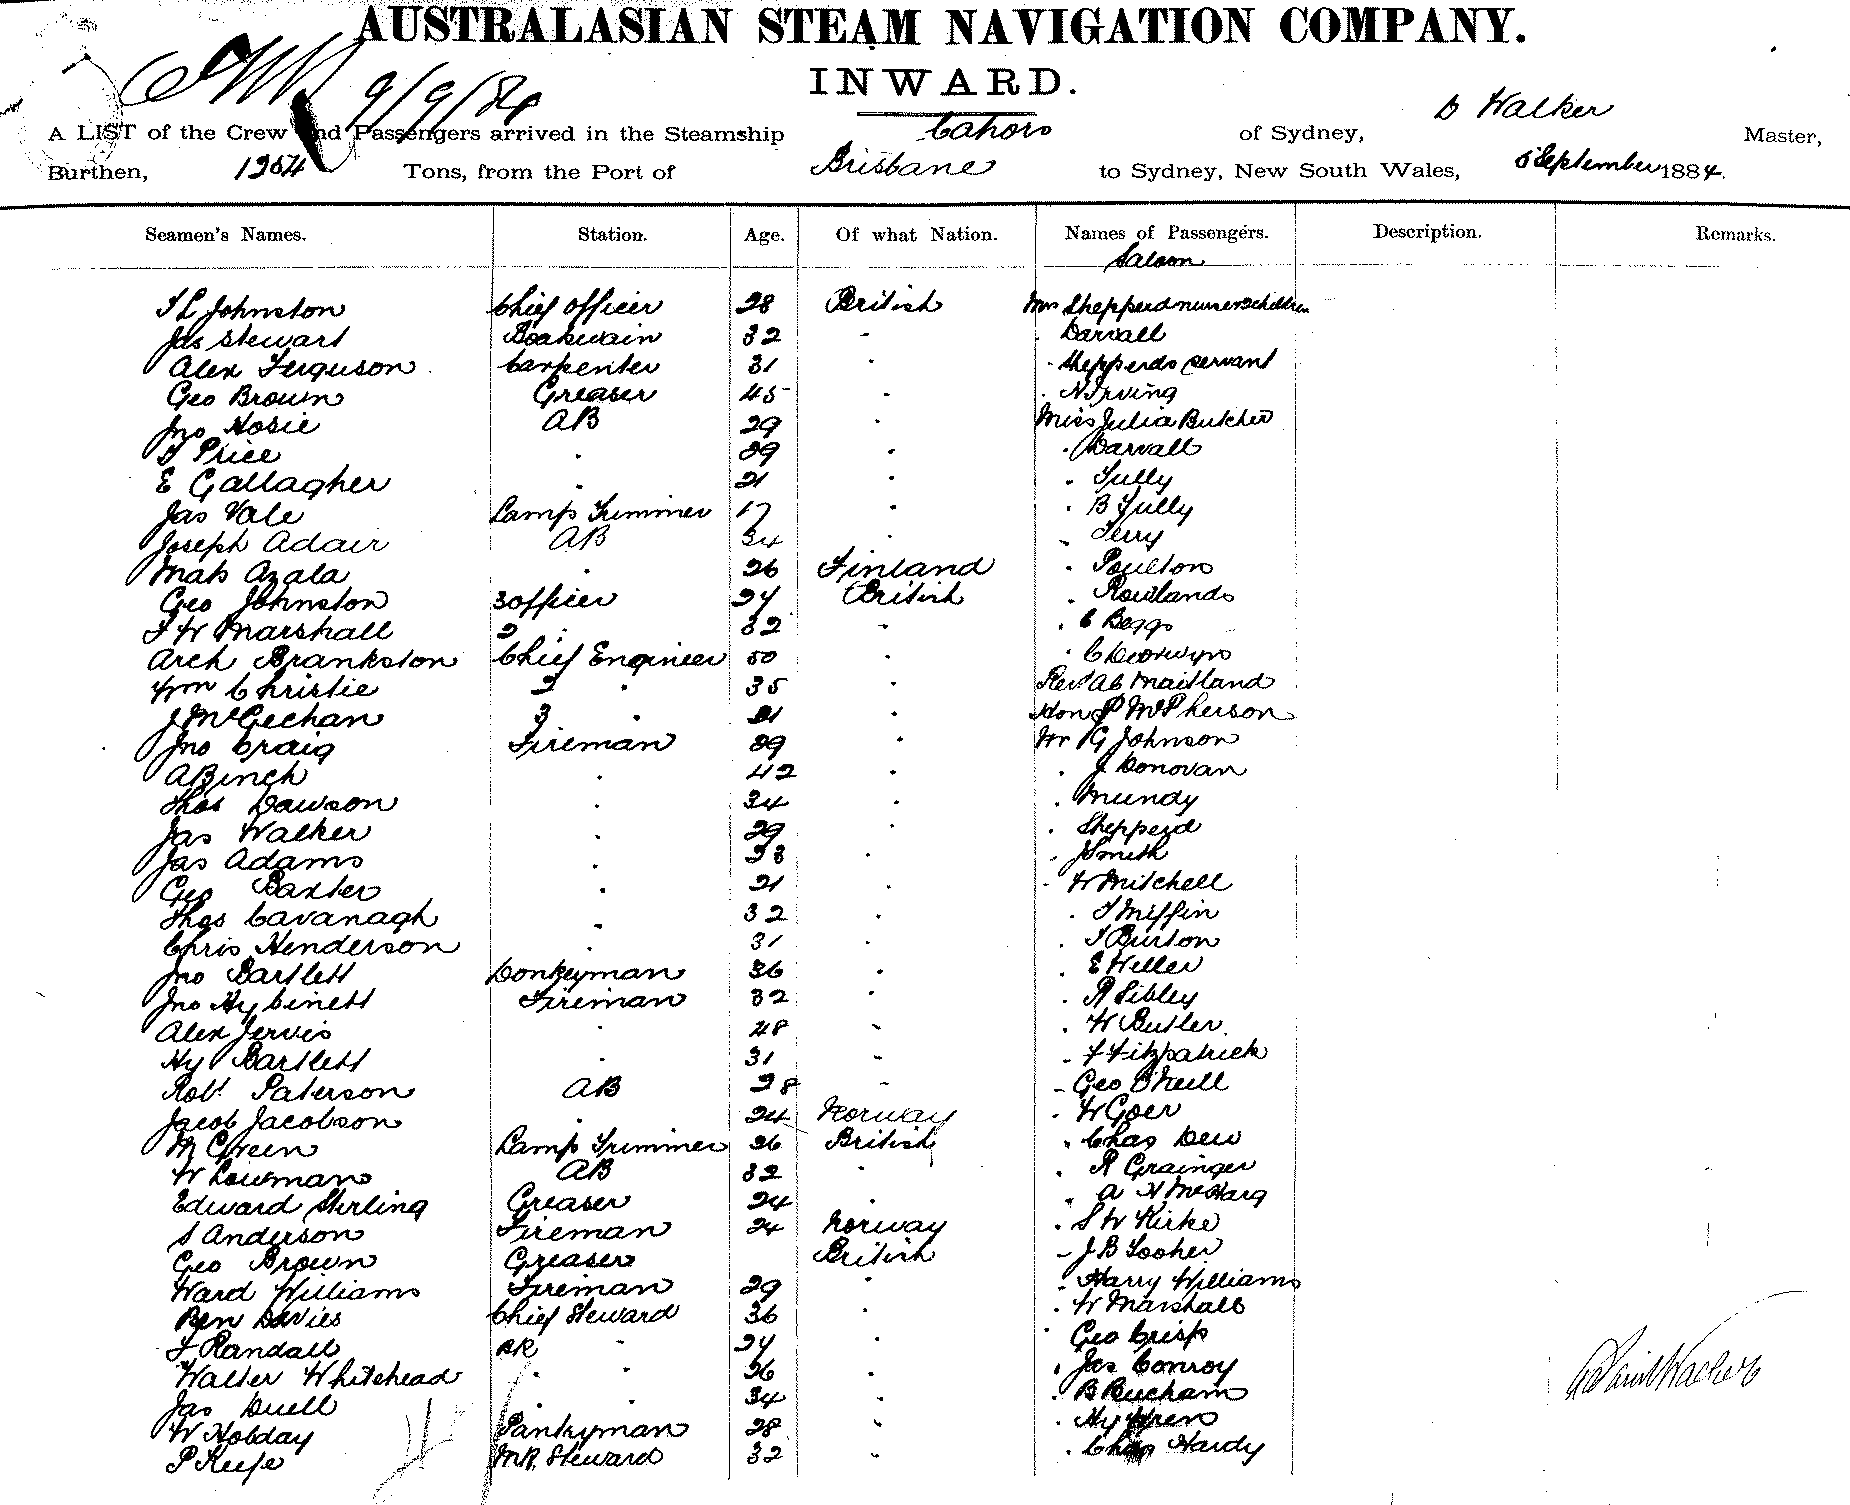 AUSTRALASIAN STEAM NAVIGATION COMPANY.
INWARD.
9/9/84
A LIST of the Crew and Passengers arrived in the Steamship Cahors of Sydney, D Walker Master,
Burthen, 1254 Tons, from the Port of Brisbane to Sydney, New South Wales, 5 September 1884.
Seamen's Names. Station. Age. Of what Nation. Names of Passengers. Description. Remarks.
Saloon
Johnston Chief Officer 28 British Mrs Shepperd nurse children
Jas Stewart Boatswain 32 - . Darvall
Alex Ferguson Carpenter 31 . . Shepperds servant
Geo Brown Greaser 45 . . N Irving
Jno Hosie AB 29 . Miss Julia Butcher
T Price . 29 . . Darvall
E Gallagher . 21 . . Tully
Jas Vale Lamp Trimmer 17 . . B Tully
Joseph Adair AB 34 . . Terry
Mats Azala . 26 Finland . Poulton
Geo Johnston 3 officer 24 British . Rowlands
F W Marshall 2 . 32 . . C Beggs
Arch Brankston Chief Engineer 50 . .
Wm Christie 2 . 35 . Revd A C Maitland
J McGechan 3 . 21 . Hon P McPherson
Jno Craig Fireman 29 . Mr G Johnson
A Binch . 42 . . J Donovan
Thos Dawson . 34 . . Mundy
Jas Walker . 29 . . Shepperd
Jas Adams . 23 . . J Smith
Geo Baxter . 21 . . W Mitchell
Thos Cavanagh . 32 . . T Miffin
Chris Henderson . 31 . . T Burton
Jno Bartlett Donkeyman 36 . . E Weller
Jno Fireman 32 . . R Sibley
Alex Jervis . 48 - . W Butler
Hy Bartlett . 31 - . F Fitzpatrick
Robt Paterson AB 28 - - Geo O'Neill
Jacob Jacobson . 24 Norway . W Goer
M Green Lamp Trimmer 26 British . Chas Dew
W Lowman AB 32 . . R Grainger
Edward Stirling Greaser 24 . . A H McHarg
S Anderson Fireman 24 Norway . S W Kirke
Geo Brown Greaser British - J B Tooher
Ward Williams Fireman 29 . . Harry Williams
Ben Davies Chief Steward 36 . . W Marshall
F Randall . 24 . . Geo Crisp
Walter Whitehead . . 26 . . Jas Conroy
Jas Duell . . 34 . . B Bucham
W Hobday Pantryman 28 . . Hy Wren
P Keefe Steward 32 . . Chas Hardy
David Walker